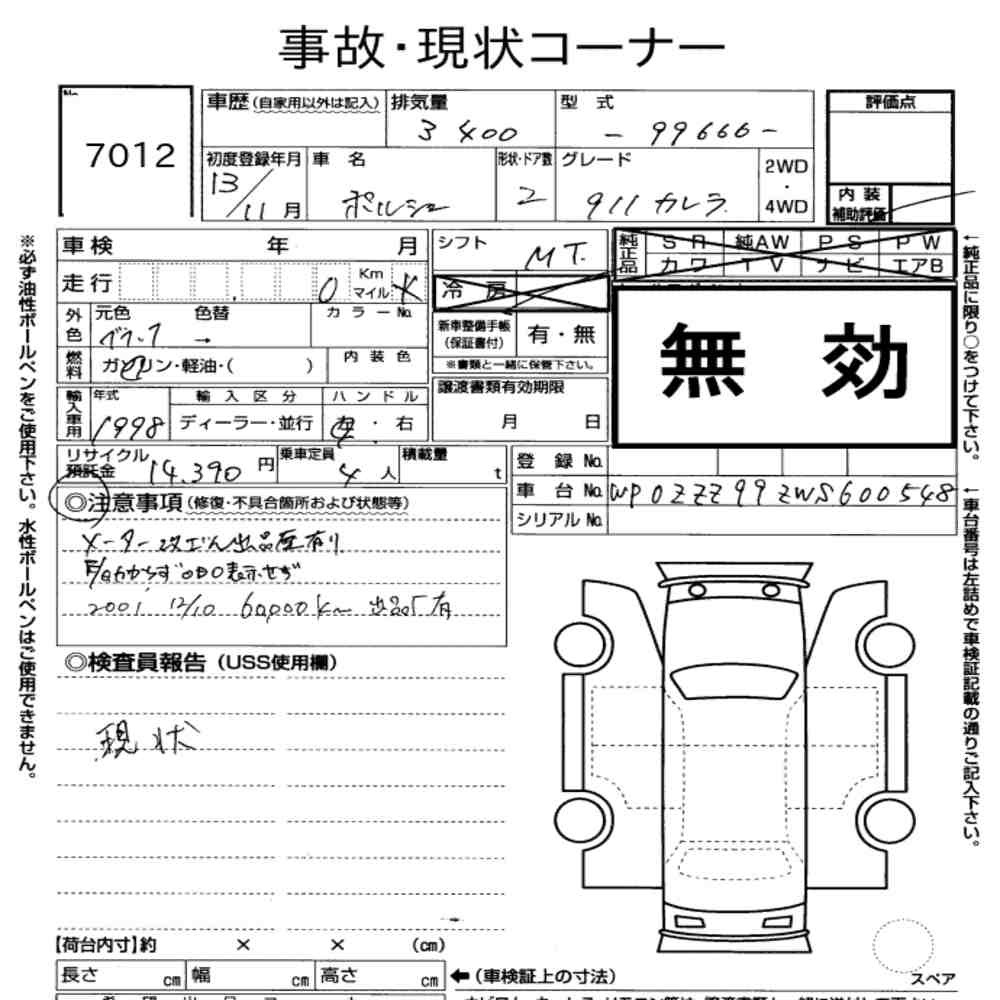 事故・現状コーナー
7012
車歴(自家用以外は記入)
排気量
3400
型 式
- 99666 -
評価点
初度登録年月
13/11月
車 名
ポルシェ
形状・ドア数
2
グレード
911 カレラ
2WD
・
4WD
内 装
補助評価
車検 年 月
シフト
MT.
純正品
SR 純AW PS PW
カワ TV ナビ エアB
走行 0 Km マイル
冷 房
外色
元色 色替
カラーNo.
新車整備手帳
(保証書付)
有・無
※書類と一緒に保管下さい。
無 効
燃料
ガソリン・軽油・( )
内 装 色
譲渡書類有効期限
月 日
輸入車用
年式
1998
輸 入 区 分
ディーラー・並行
ハ ン ド ル
左・右
リサイクル
預託金
14,390 円
乗車定員
4 人
積載量
t
登 録 No.
車 台 No. WP0ZZZ99ZWS600548
シリアル No.
◎注意事項(修復・不具合箇所および状態等)
メーター改ざん出品歴有り
2001. 12/10 60,000km
◎検査員報告(USS使用欄)
現状
【荷台内寸】約 × × (cm)
長さ cm 幅 cm 高さ cm
←(車検証上の寸法)
スペア
※必ず油性ボールペンをご使用下さい。水性ボールペンはご使用できません。
←純正品に限り○をつけて下さい。
←車台番号は左詰めで車検証記載の通りご記入下さい。